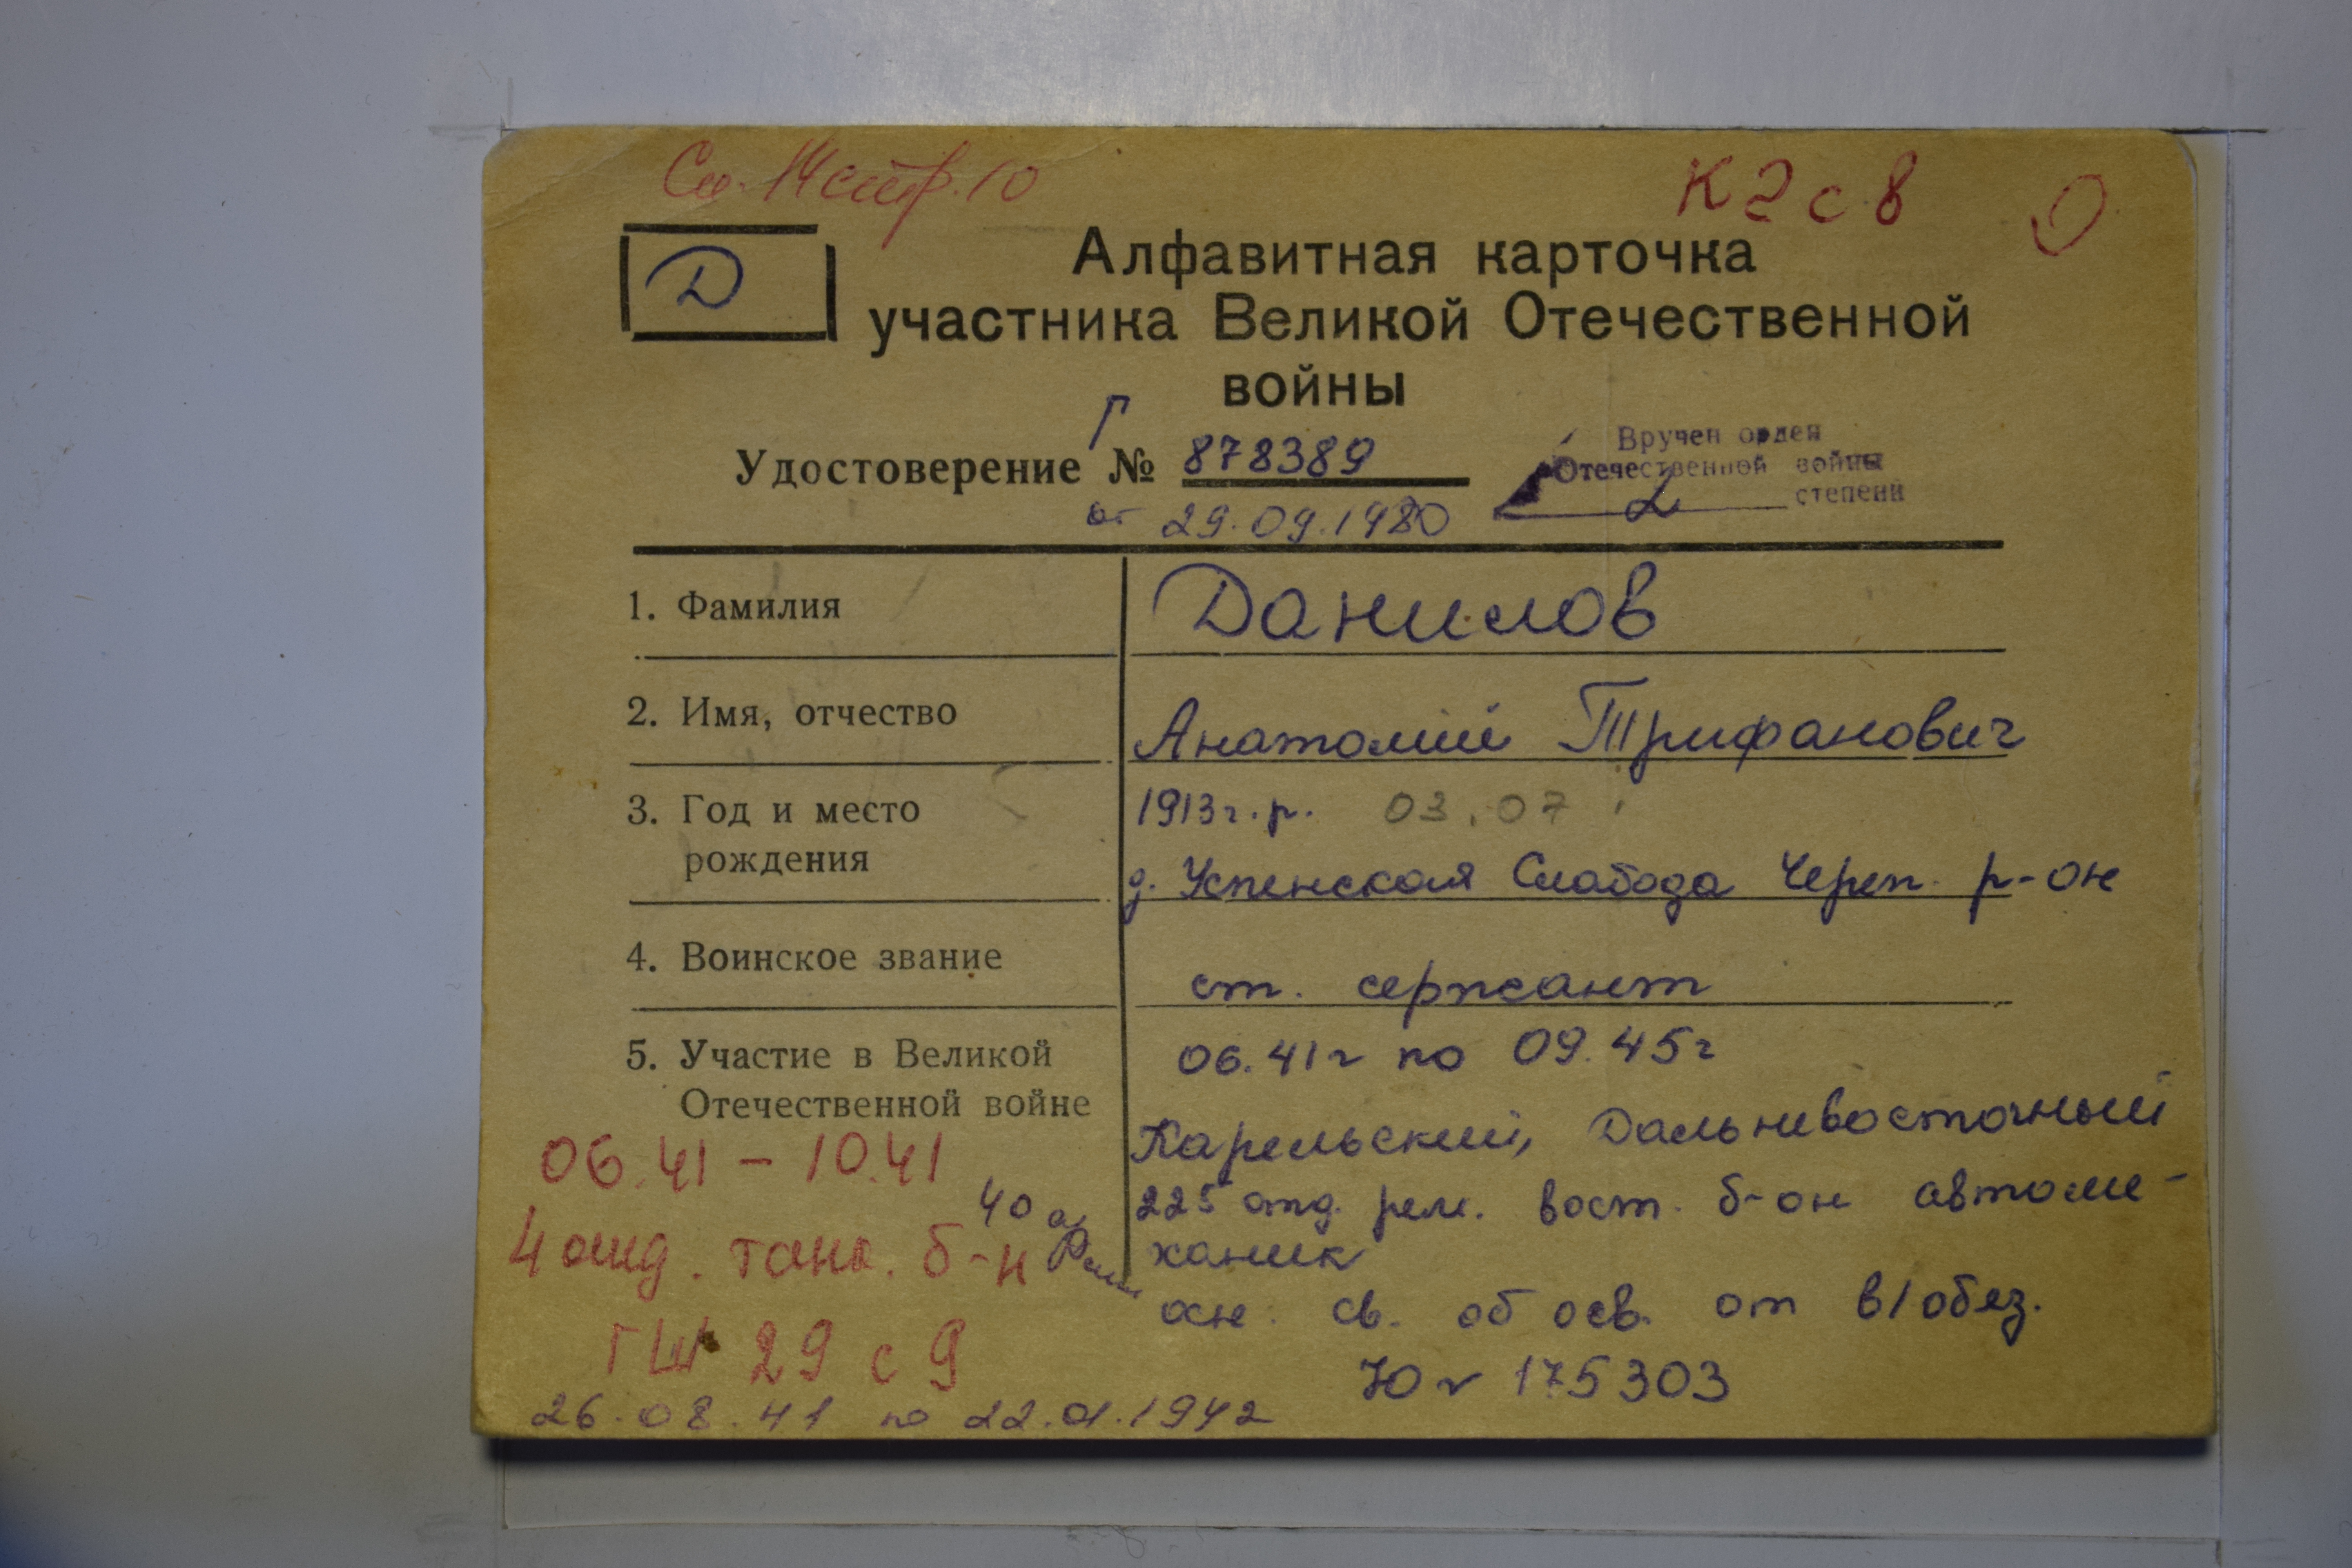 К 2 с 8
Д
Алфавитная карточка
участника Великой Отечественной
войны
Г
Удостоверение № 878389
от 29.09.1980
Вручен орден
Отечественной войны
2 степени
1. Фамилия
Данилов
2. Имя, отчество
Анатолий Трифанович
3. Год и место
рождения
1913 г.р. 03.07
д. Успенская Слабода Череп. р-он
4. Воинское звание
ст. сержант
5. Участие в Великой
Отечественной войне
06.41 г по 09.45 г
Карельский, Дальневосточный
225 отд. рем. вост. б-он автоме-
ханик
осн. св. об осв. от в/обяз.
Ю № 175303
06.41 – 10.41
4 отд. танк. б-н
40 а
ГШ 29 с 9
26.08.41 по 22.01.1942